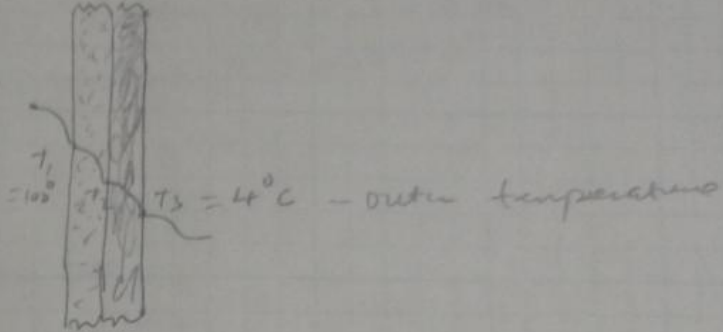 T₁
=100°
T₂
T₃ = 4°C – outer temperature